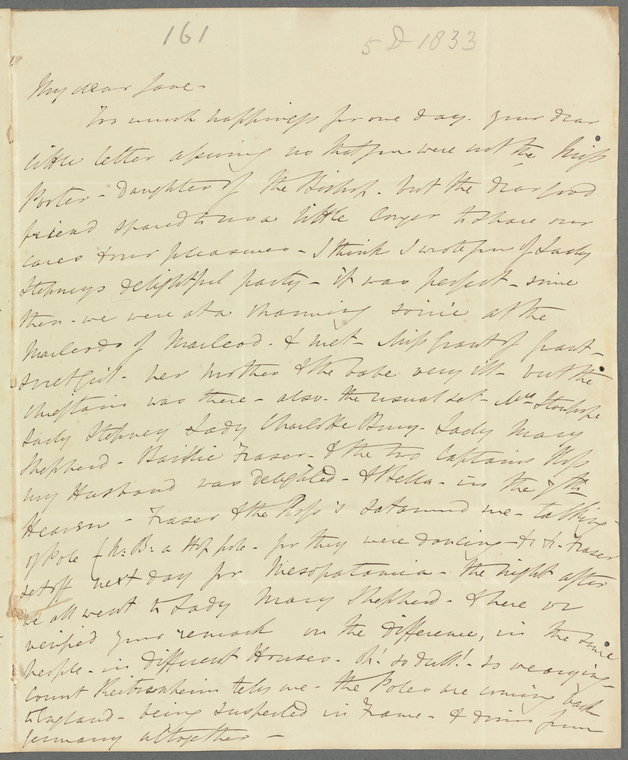 161
5 D 1833
My dear Jane -
Too much happiness for one day. your dear
little letter assuring us that you were not the Miss
Porter - Daughter of the Bishop - but the dear good
friend spared to us a little longer to share our
cares & our pleasures - I think I wrote you of Lady
Stepneys delightful party - it was perfect - since
then - we were at a charming soirée at the
Macleods of Macleod - & met - Miss Grant of Grant -
sweet Girl - her mother & the babe very ill - but the
Chieftain was there - also - the usual set - Mrs Stanhope
Lady Stepney Lady Charlotte Bury - Lady Mary
Shepherd - Baillie Fraser - & the two Captains Ross
my Husband was delighted - & Bella - in the 7th
Heaven - Fraser & the Ross's sat round me - talking -
of Pole (N. B. a Hop pole - for they were dancing -
set off next day for Mesopotamia - the night after
we all went to Lady Mary Shepherd - & there we
verified your remark on the difference, in the same
people - in different Houses. Oh! so dull! - so wearying -
Count tells me - the Poles are coming back
to England - being suspected in France - & driven from
Germany altogether -